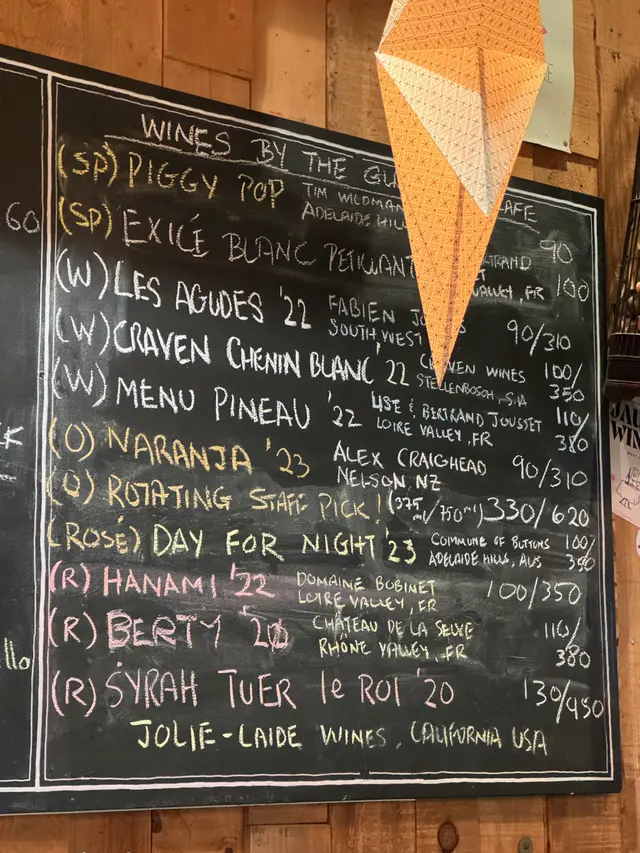 WINES BY THE
60
(SP) PIGGY POP TIM WILDMAN 90
ADELAIDE HILLS
(SP) EXILÉ BLANC PETILLANT 100
VALLEY, FR
(W) LES AGUDES '22 FABIEN 90/310
SOUTH WEST
(W) CRAVEN CHENIN BLANC '22 CRAVEN WINES 100/
STELLENBOSCH, S.A 350
(W) MENU PINEAU '22 LISE & BERTRAND JOUSSET 110/
LOIRE VALLEY, FR 380
(O) NARANJA '23 ALEX CRAIGHEAD 90/310
NELSON, NZ
(O) ROTATING STAFF PICK! (375 ml/750ml) 330/620
(ROSÉ) DAY FOR NIGHT '23 COMMUNE OF BUTTONS 100/
ADELAIDE HILLS, AUS 350
(R) HANAMI '22 DOMAINE BOBINET 100/350
LOIRE VALLEY, FR
(R) BERTY '20 CHÂTEAU DE LA SELVE 110/
RHÔNE VALLEY, FR 380
llo
(R) SYRAH TUER le ROI '20 130/950
JOLIE-LAIDE WINES, CALIFORNIA USA